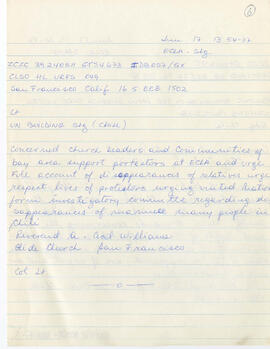 6
June 17 13 54-77
ECLA - Stg
ZCZC
CLSO HL URFS 044
San Francisco Calif 16 5 ECB 1502
CA
UN BUILDING Stg (Chile)
Concerned church leaders and Communities of
bay area support protestors at ECLA and urge
Full account of disappearances of relatives urge
respect lives of protestors urging united Nations
form investigatory committe regarding dis
appearances of many people in
Chile
Reverend A. Cecil Williams
Glide Church San Francisco
Col 21
—o—